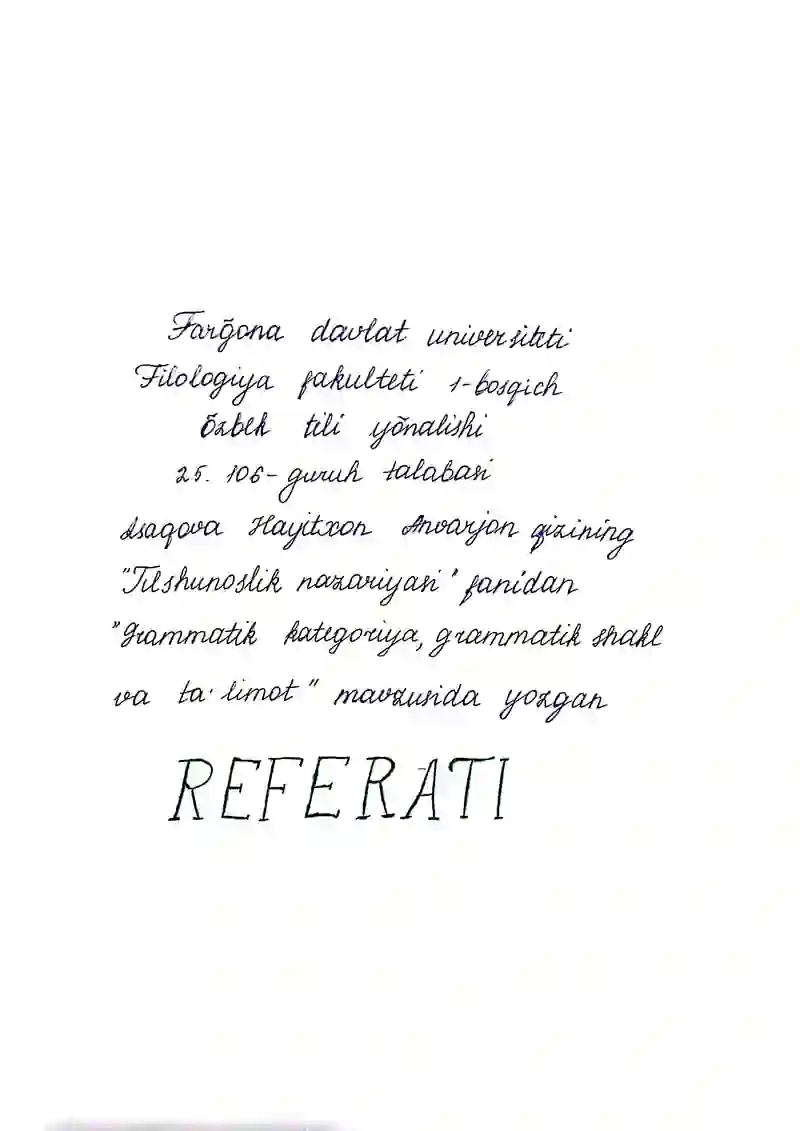 Farg̃ona davlat universiteti
Filologiya fakulteti 1-bosqich
Õzbek tili yõnalishi
25. 106- guruh talabasi
Isaqova Hayitxon Anvarjon qizining
"Tilshunoslik nazariyasi" fanidan
"Grammatik kategoriya, grammatik shakl
va ta'limot" mavzusida yozgan
REFERATI